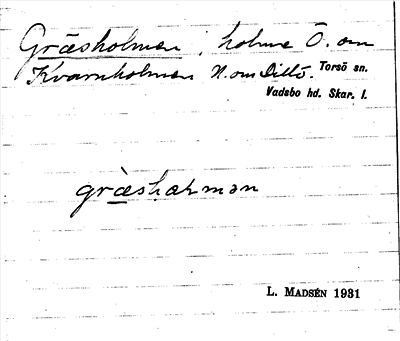 Gräsholmen, holme Ö. om
Kvarnholmen N. om Dillö. Torsö sn.
Vadsbo hd. Skar. l.
grὰshαrmən
L. MADSÉN 1931